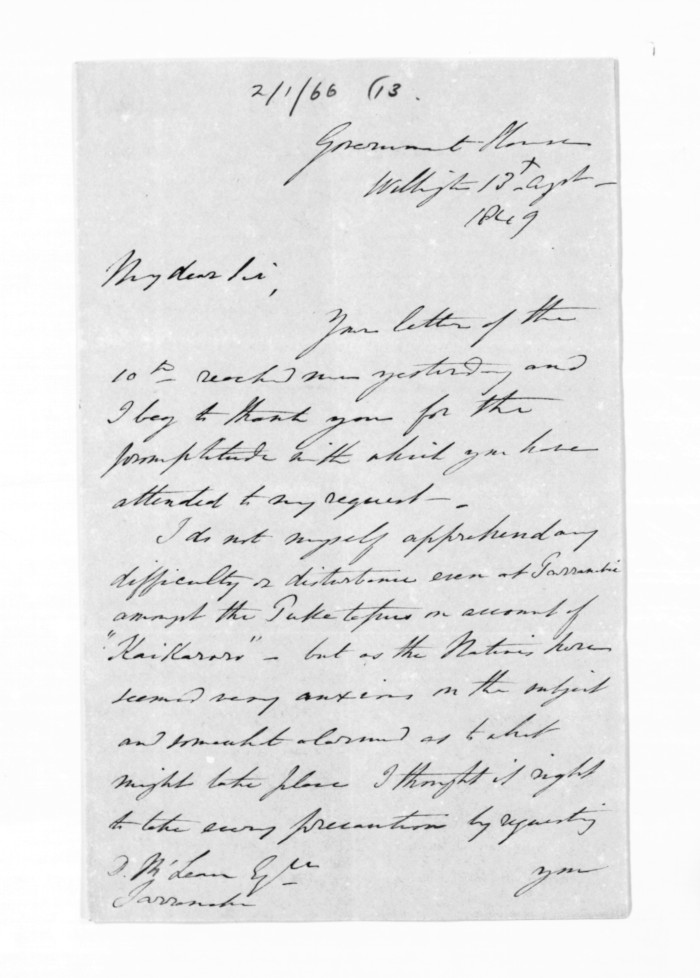 2/1/66 (13.
Government House
Wellington 13th Augst
1849
My dear Sir,
Your letter of the
10th reached me yesterday and
I beg to thank you for the
promptitude with which you have
attended to my request.
I do not myself apprehend any
difficulty or disturbance even at Tarranaki
amongst the Puketapus on account of
"KaiKaroro" - but as the Natives here
seemed very anxious on the subject
and somewhat alarmed as to what
might take place I thought it right
to take every precaution by requesting
you
D. McLean Esqre
Tarranaki